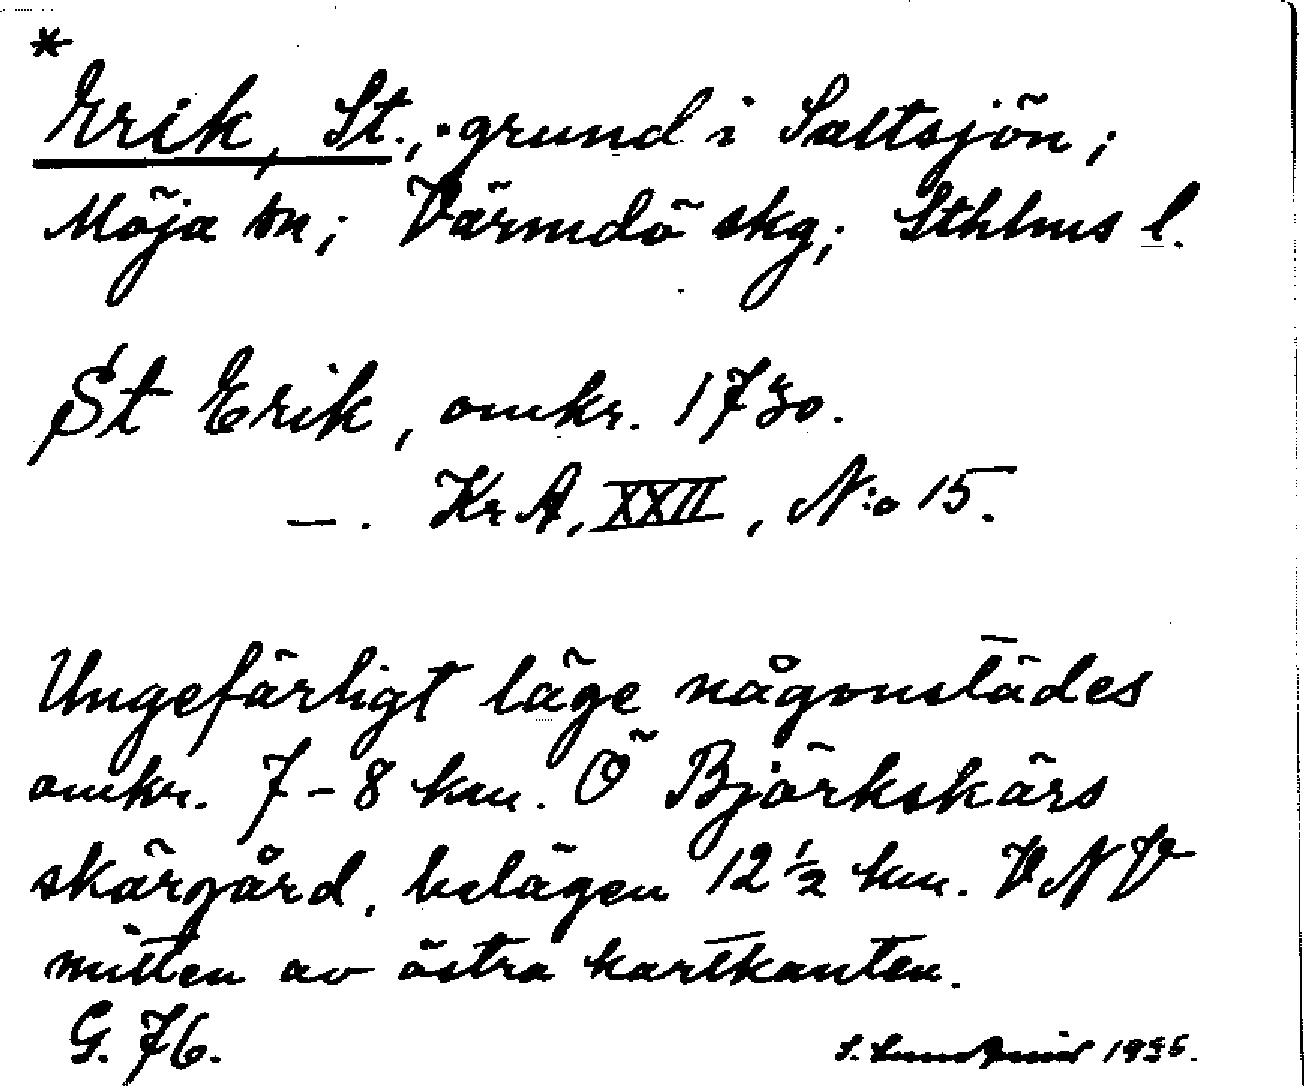 *
Erik, St., grund i Saltsjön;
Möja sn; Värmdö skg; Sthlms l.
St Erik, omkr. 1730.
—. KrA, XXII, N:o 15.
Ungefärligt läge någonstädes
omkr. 7-8 km. Ö Björkskärs
skärgård, belägen 12 ½ km. VNV
mitten av östra kartkanten.
G. 76.
S.